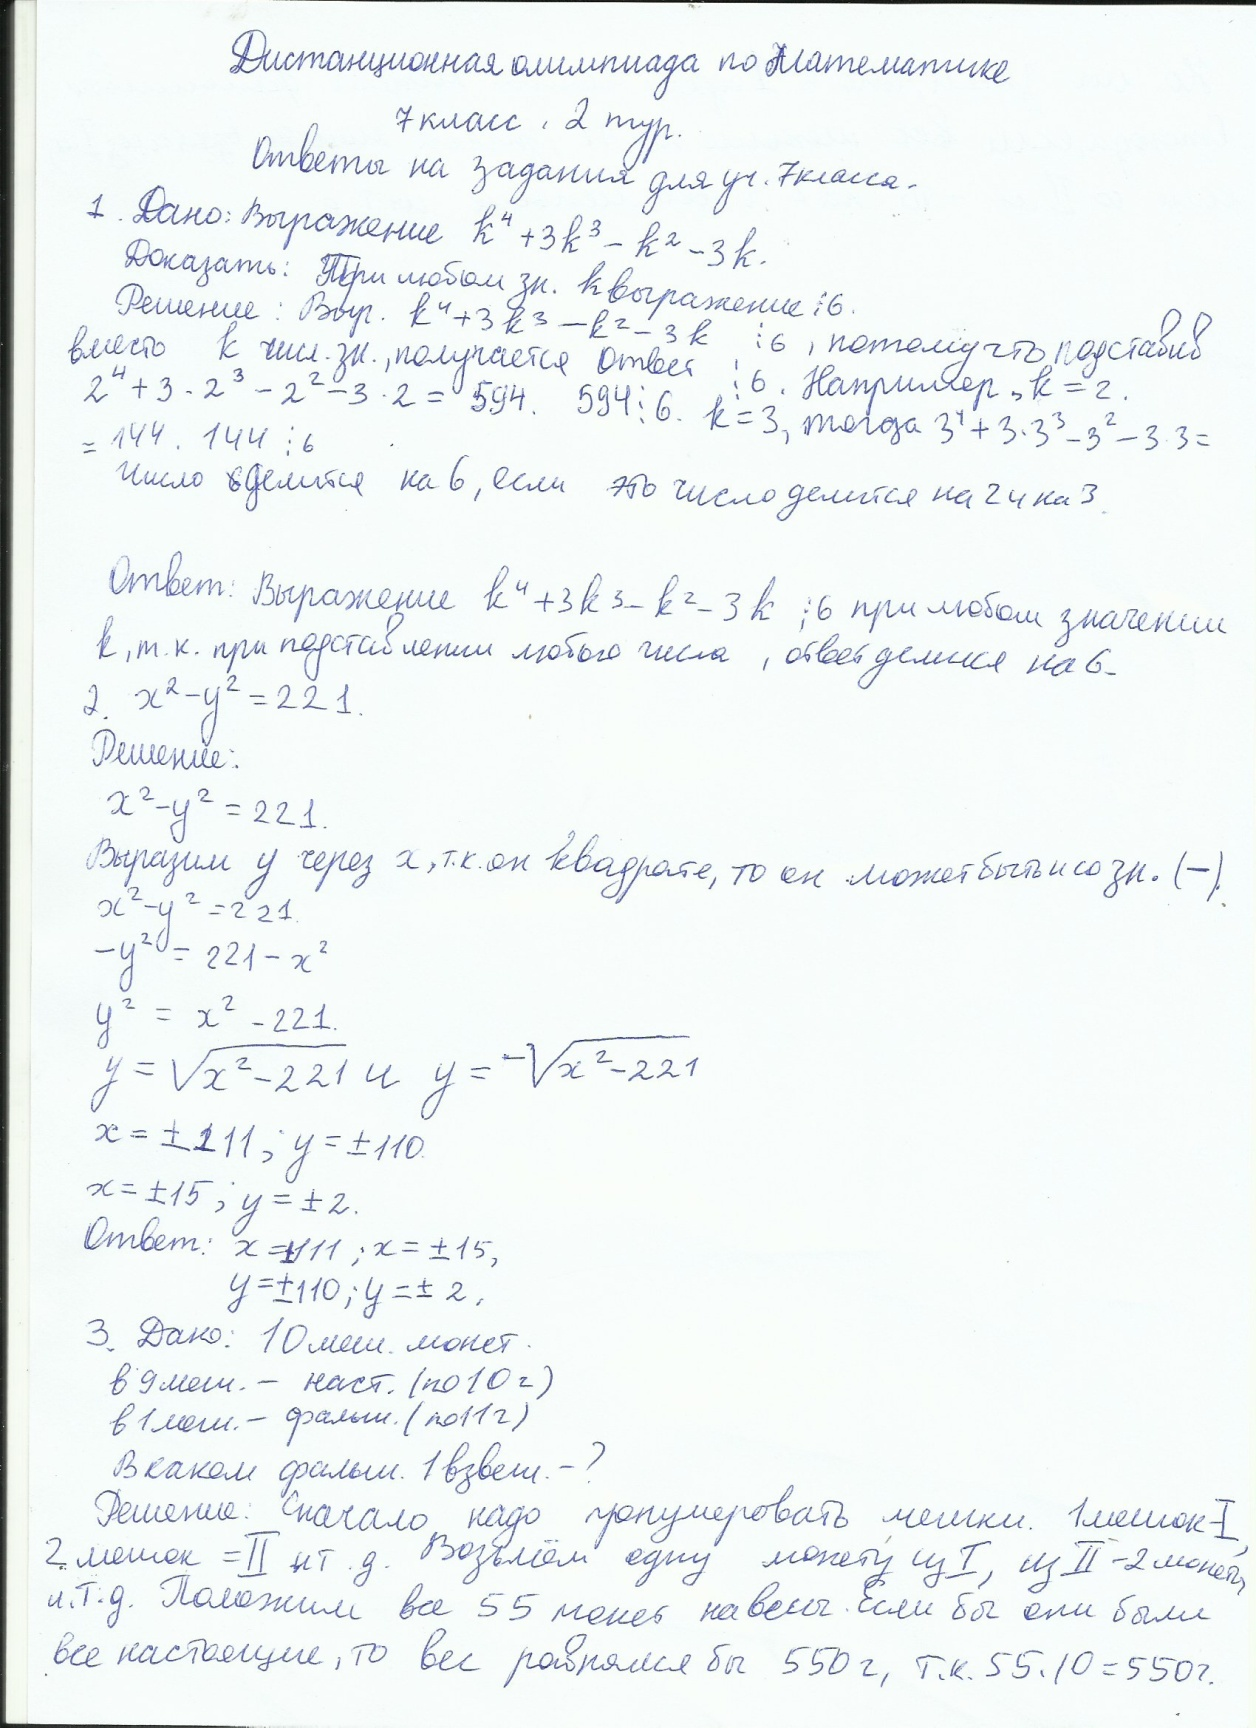 Дистанционная олимпиада по Математике
7 класс. 2 тур.
Ответы на задания для уч. 7 класса.
1. Дано: Выражение k⁴+3k³-k²-3k.
Доказать: При любом зн. k выражение ⋮6.
Решение: Выр. k⁴+3k³-k²-3k ⋮6, потому что, подставив
вместо k числ. зн., получается ответ ⋮6. Например, k=2.
2⁴+3·2³-2²-3·2=594. 594⋮6. k=3, тогда 3⁴+3·3³-3²-3·3=
=144. 144⋮6
Число делится на 6, если это число делится на 2 и на 3.
Ответ: Выражение k⁴+3k³-k²-3k ⋮6 при любом значении
k, т.к. при подставлении любого числа, ответ делится на 6.
2. x²-y²=221.
Решение:
x²-y²=221.
Выразим y через x, т.к. он квадрате, то он может быть и со зн. (-).
x²-y²=221.
-y²=221-x²
y²=x²-221.
y=√x²-221 и y=-√x²-221
x=±111; y=±110.
x=±15; y=±2.
Ответ: x=±111; x=±15,
y=±110; y=±2.
3. Дано: 10 меш. монет.
в 9 меш. - наст. (по 10 г)
в 1 меш. - фальш. (по 11 г)
В каком фальш. 1 взвеш. - ?
Решение: Сначало надо пронумеровать мешки. 1 мешок-I,
2 мешок = II и т.д. Возьмём одну монету из I, из II - 2 монеты,
и.т.д. Положим все 55 монет на весы. Если бы они были
все настоящие, то вес равнялся бы 550 г, т.к. 55·10=550г.